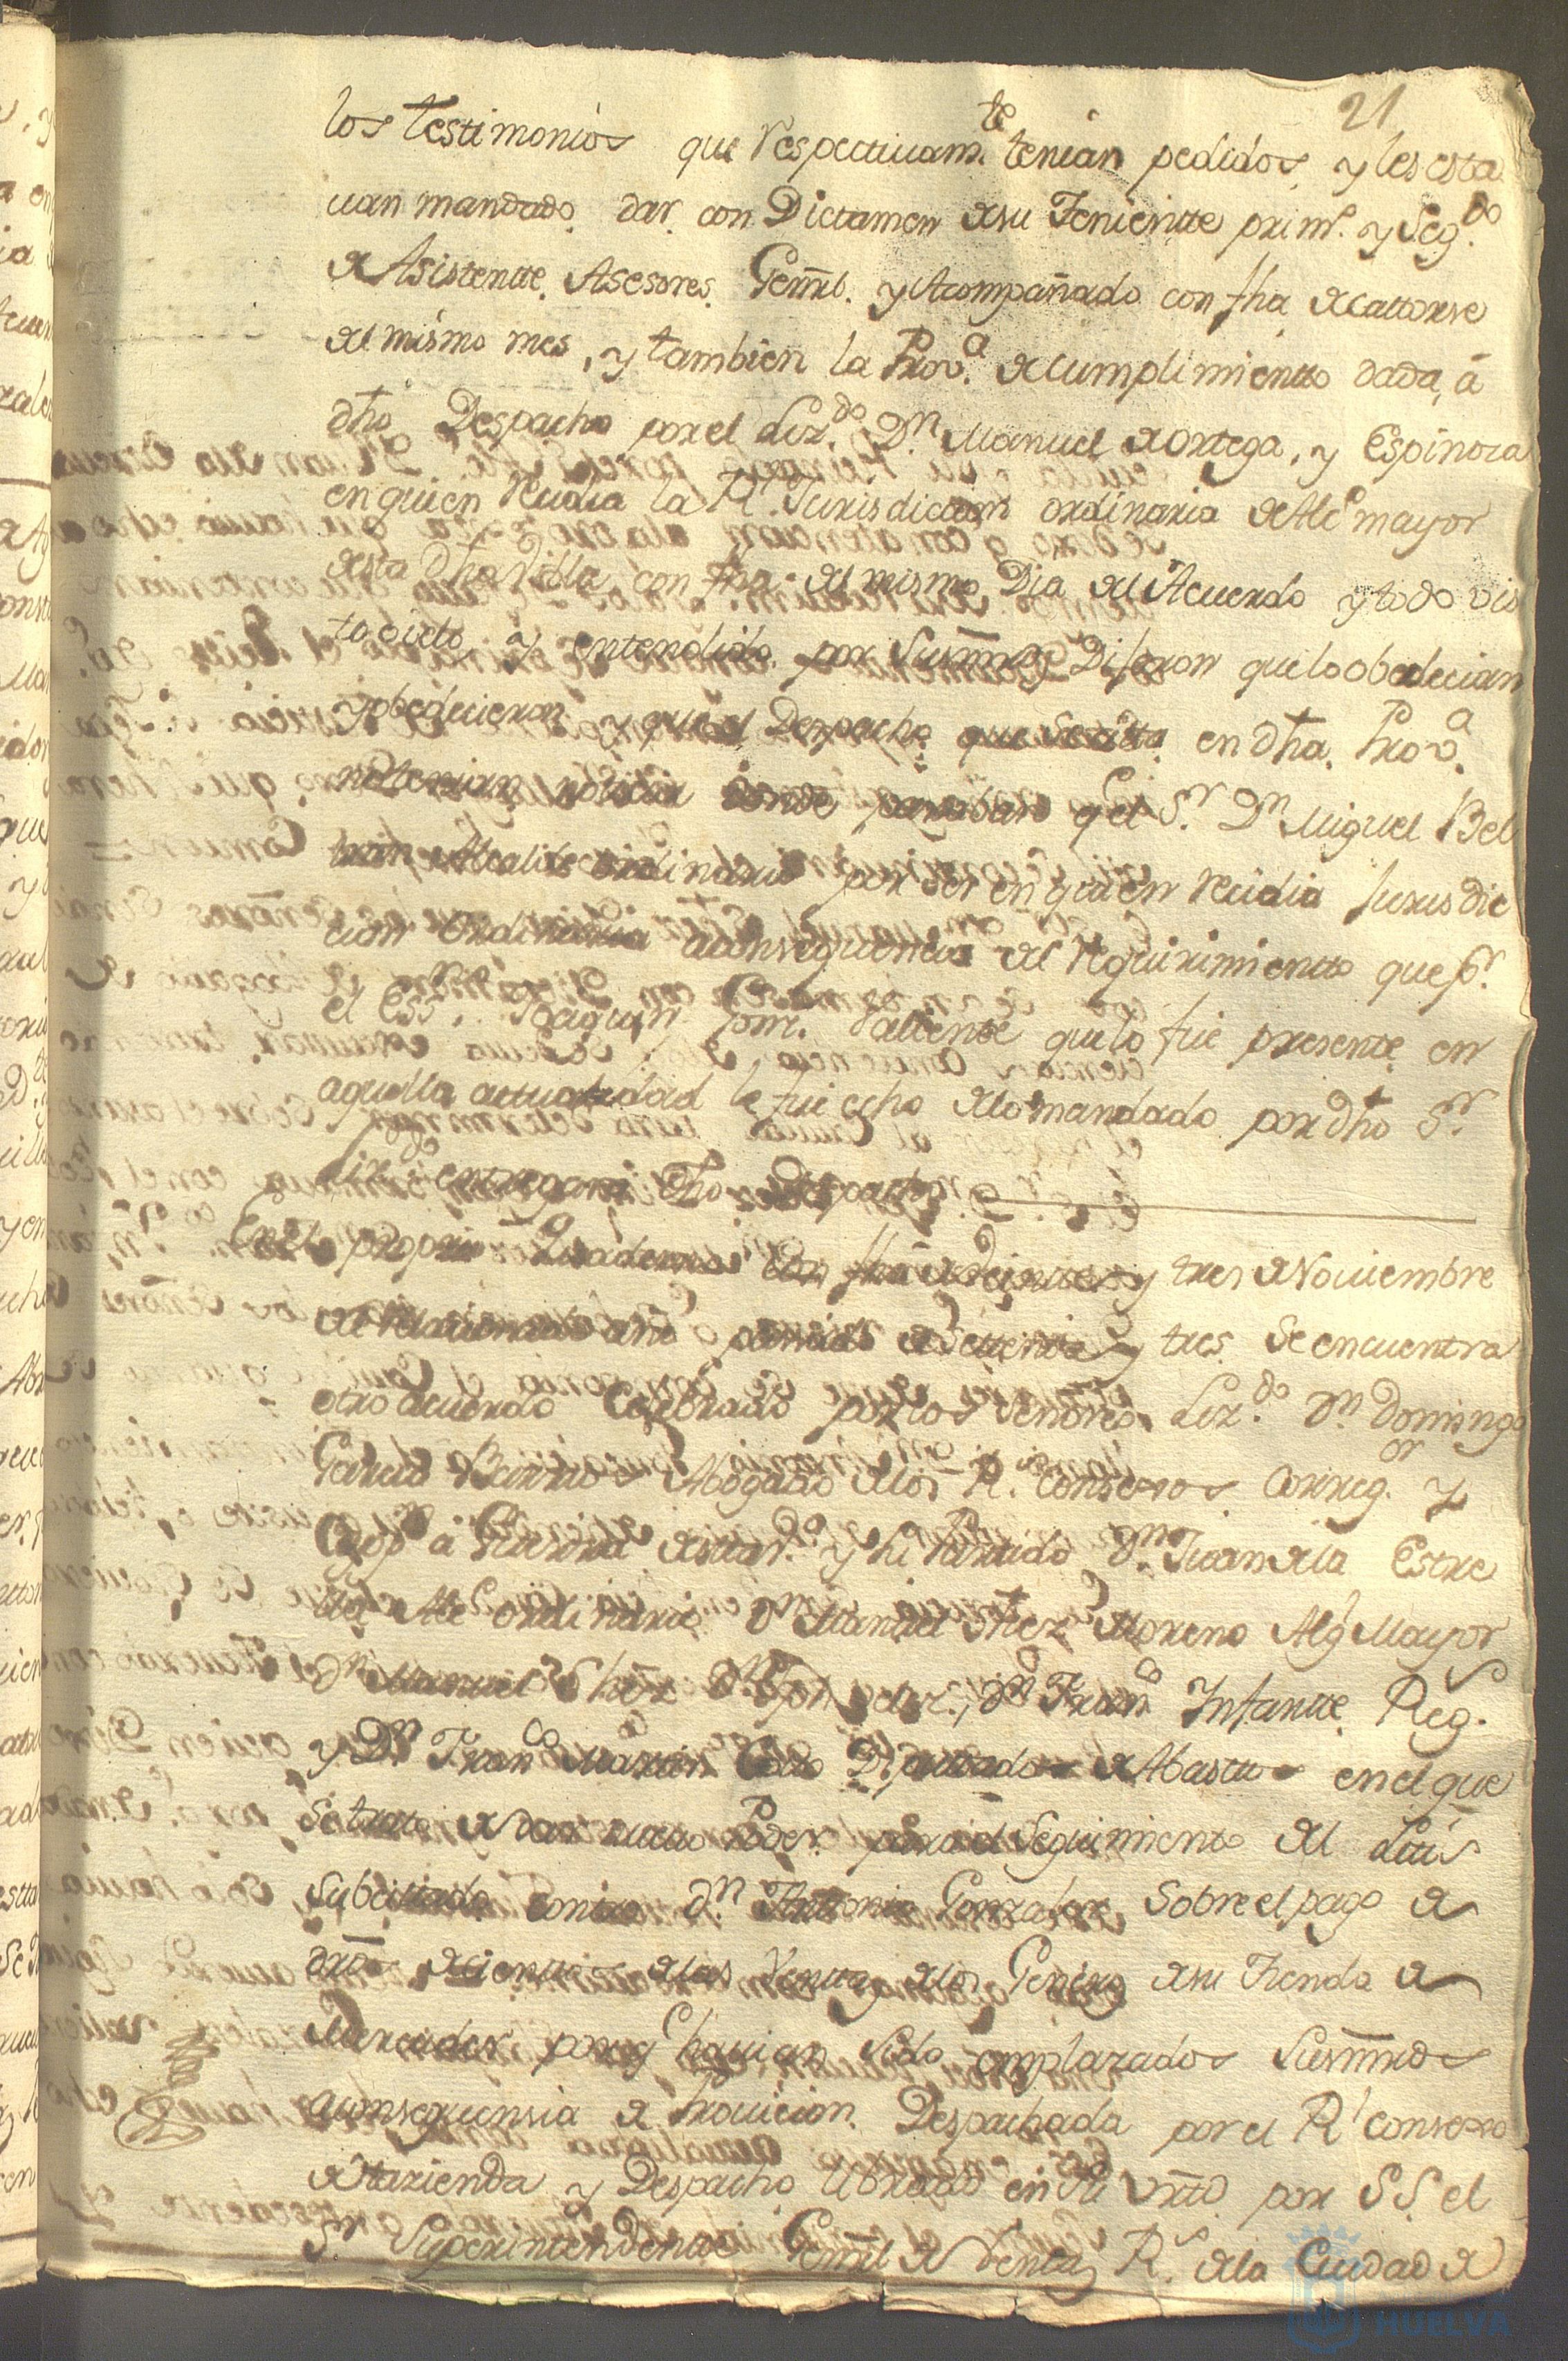 21
los testimonios que respectiuamte tenian pedidos, y les esta
uan mandado dar con Dictamen de su Teniente prim.o y Seg.do
de Asistente Asesores Genrl. y Acompañado con fha de catorse
del mismo mes, y tambien la Prov.a de cumplimiento dada, á
dho Despacho por el Liz.do Dn Manuel de Ortega, y Espinosa
en quien residia la Rl Jurisdiccion ordinaria de Alce mayor
de esta dha Villa con fha del mismo Dia del Acuerdo y todo vis
to oido y entendido por Susmrds Dijeron que lo obedecian
y obedecieron y que el Despacho que se cita en dha Prov.a
no tenian noticia donde paraba q el Sr Dn Miguel Bel
tran Alcalde ordinario por ser en quien residia Jurisdic
cion Ordinaria a consequencia del requirimiento que pr
el Essno Joaquin Valiente que lo fue presente en
aquella actualidad le fue echo de lo mandado por dho Sr
Liz.do entregara dho Despacho
En el proprio Quaderno con fha de Veinte y tres de Nouiembre
del relacionado año pasado de Setenta y tres Se encuentra
otro acuerdo Celebrado por los Señores Liz.do Dn Domingo
Garcia Barrios Abogado de los Rs Consexos Corregor y
Cappn á Guerra de esta V.a y su Partido Dn Juan de la Estre
lla Alce ordinario Dn Manuel Shez Moreno Alg.l Mayor
Dn Manuel Shez Dn Franco Infante Reg.s
y Dn Franco Martin Coto Diputado de Abastos en el que
Se trato de dar nueuo Poder para el Seguimiento del Litis
Subcitado contra Dn Antonio Gonzalez Sobre el pago de
dros de cientos de las Ventas de los Generos de su Tienda de
Mercader por q hauian Sido emplazados Susmrds
a consequensia de Prouicion Despachada por el Rl Consexo
de Hazienda y Despacho librado en Su Vrtd por S S el
Sr Superintendente Genrl de Rentas Rs de la Ciudad de
HUELVA